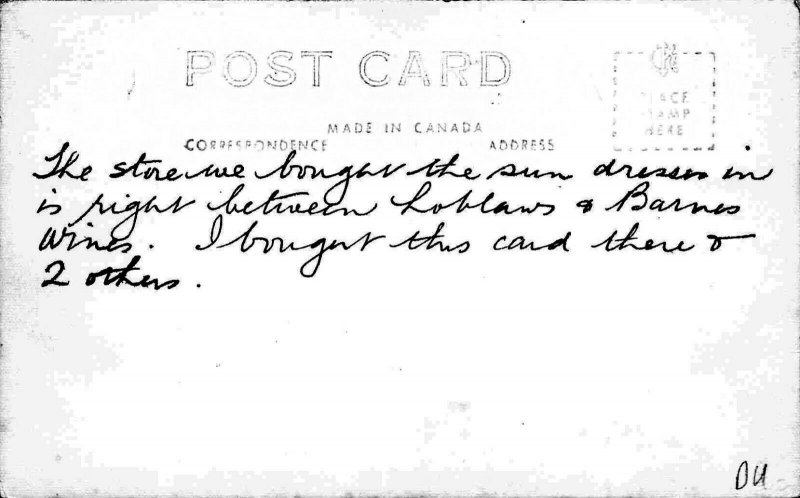 POST CARD
PLACE
STAMP
HERE
MADE IN CANADA
CORRESPONDENCE ADDRESS
The store we bought the sun dresses in
is right between Loblaws & Barnes
Wines. I bought this card there &
2 others.